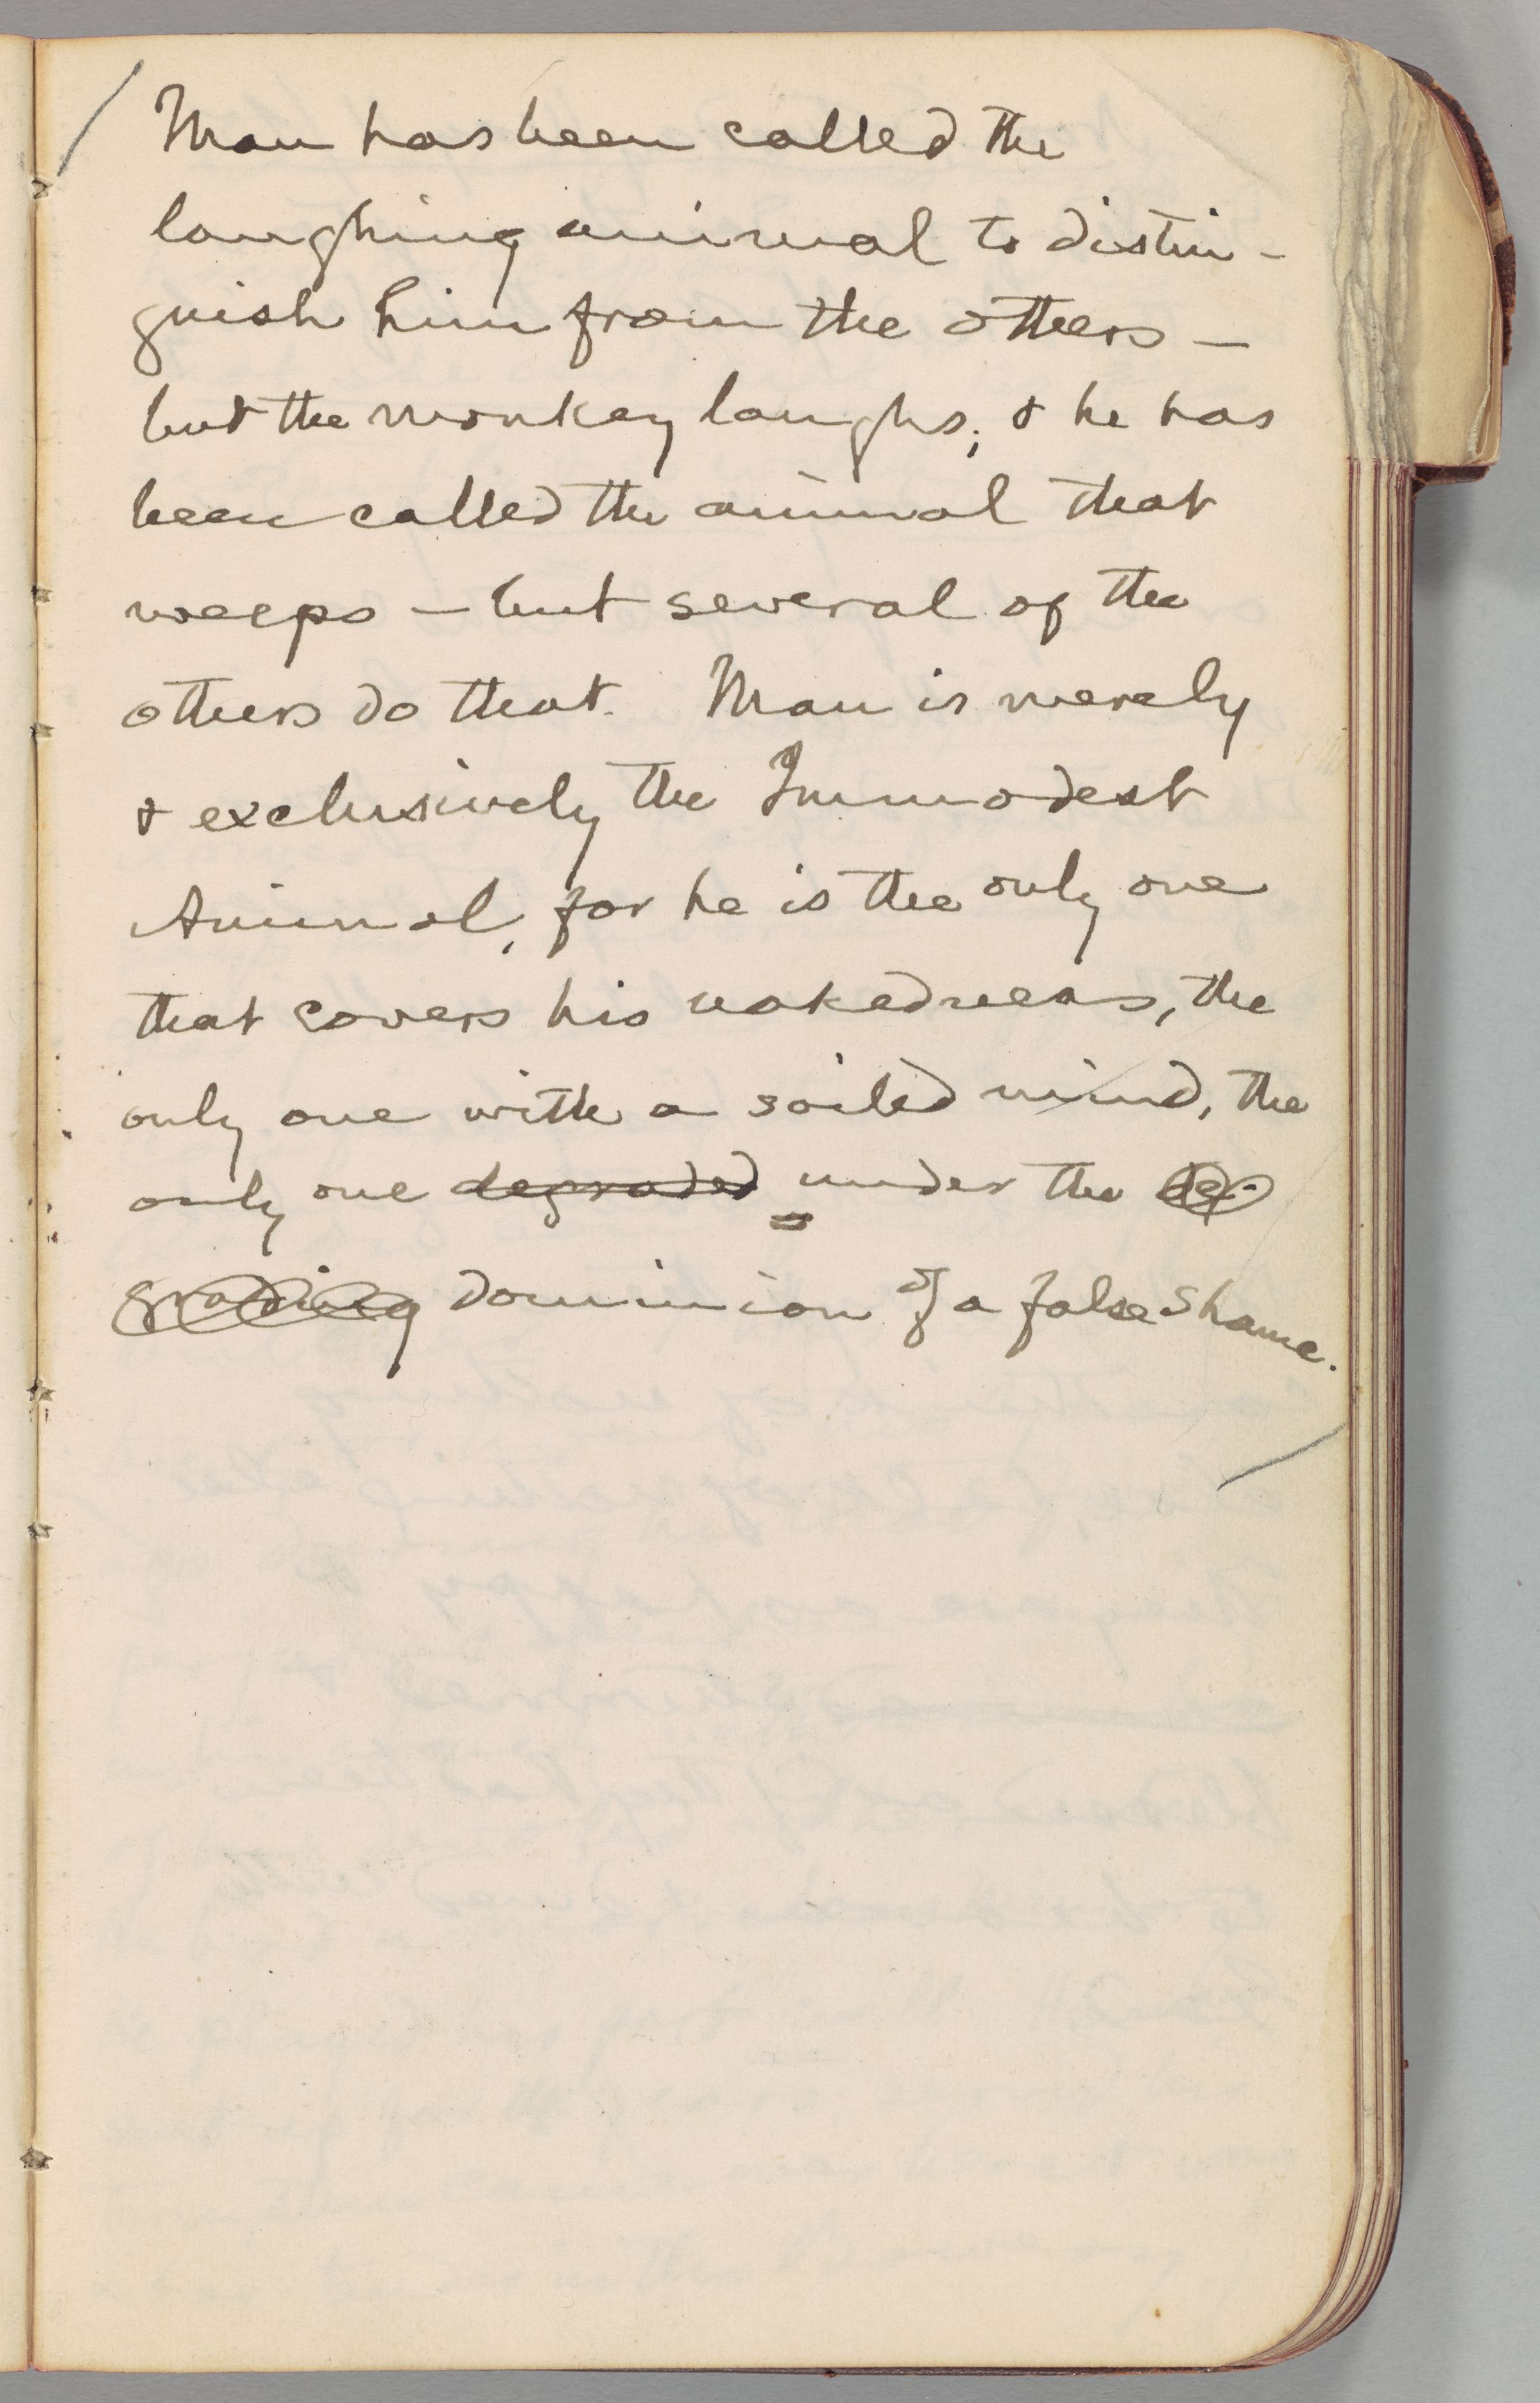 Man has been called the
laughing animal to distin-
guish him from the others —
but the monkey laughs; & he has
been called the animal that
weeps — but several of the
others do that. Man is merely
& exclusively the Immodest
Animal, for he is the only one
that covers his nakedness, the
only one with a soiled mind, the
only one degraded under the de-
grading dominion of a false shame.